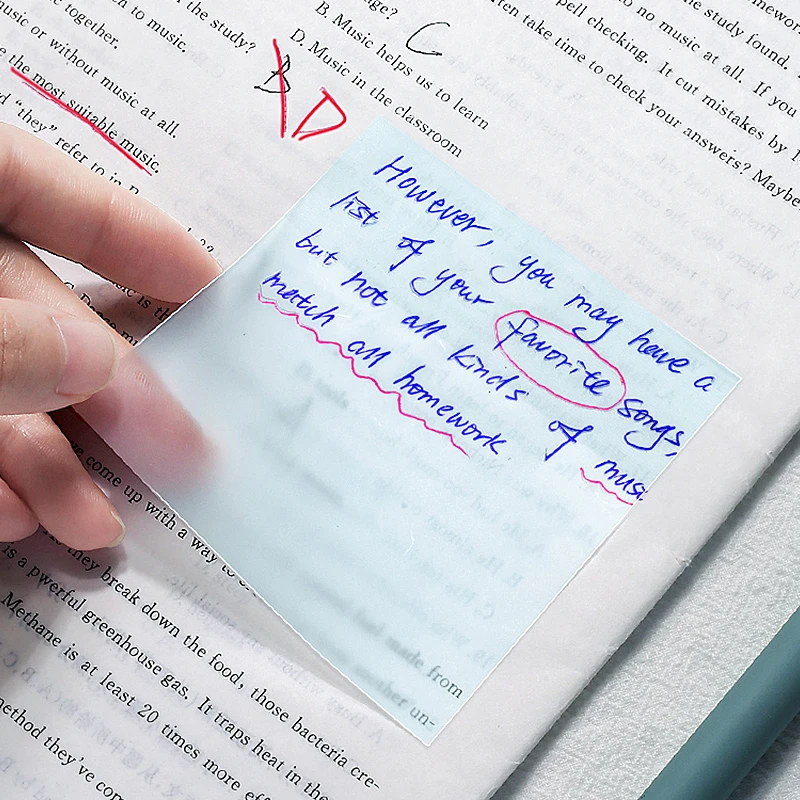 age?
B. Music helps us to learn
D. Music in the classroom
C
B D
n to music.
the study?
e together.
music or without music at all.
e the most suitable music.
d "they" refer to in p
to no music at all. If you
pell checking. It cut mistakes by 1
ten take time to check your answers? Maybe
the study found.
However, you may have a
list of your favorite songs,
but not all kinds of musi
match all homework
come up with a way to
they break down the food, those bacteria cre-
is a pwerful greenhouse gas. It traps heat in the
Methane is at least 20 times more eff
method they've com
made from
another un-